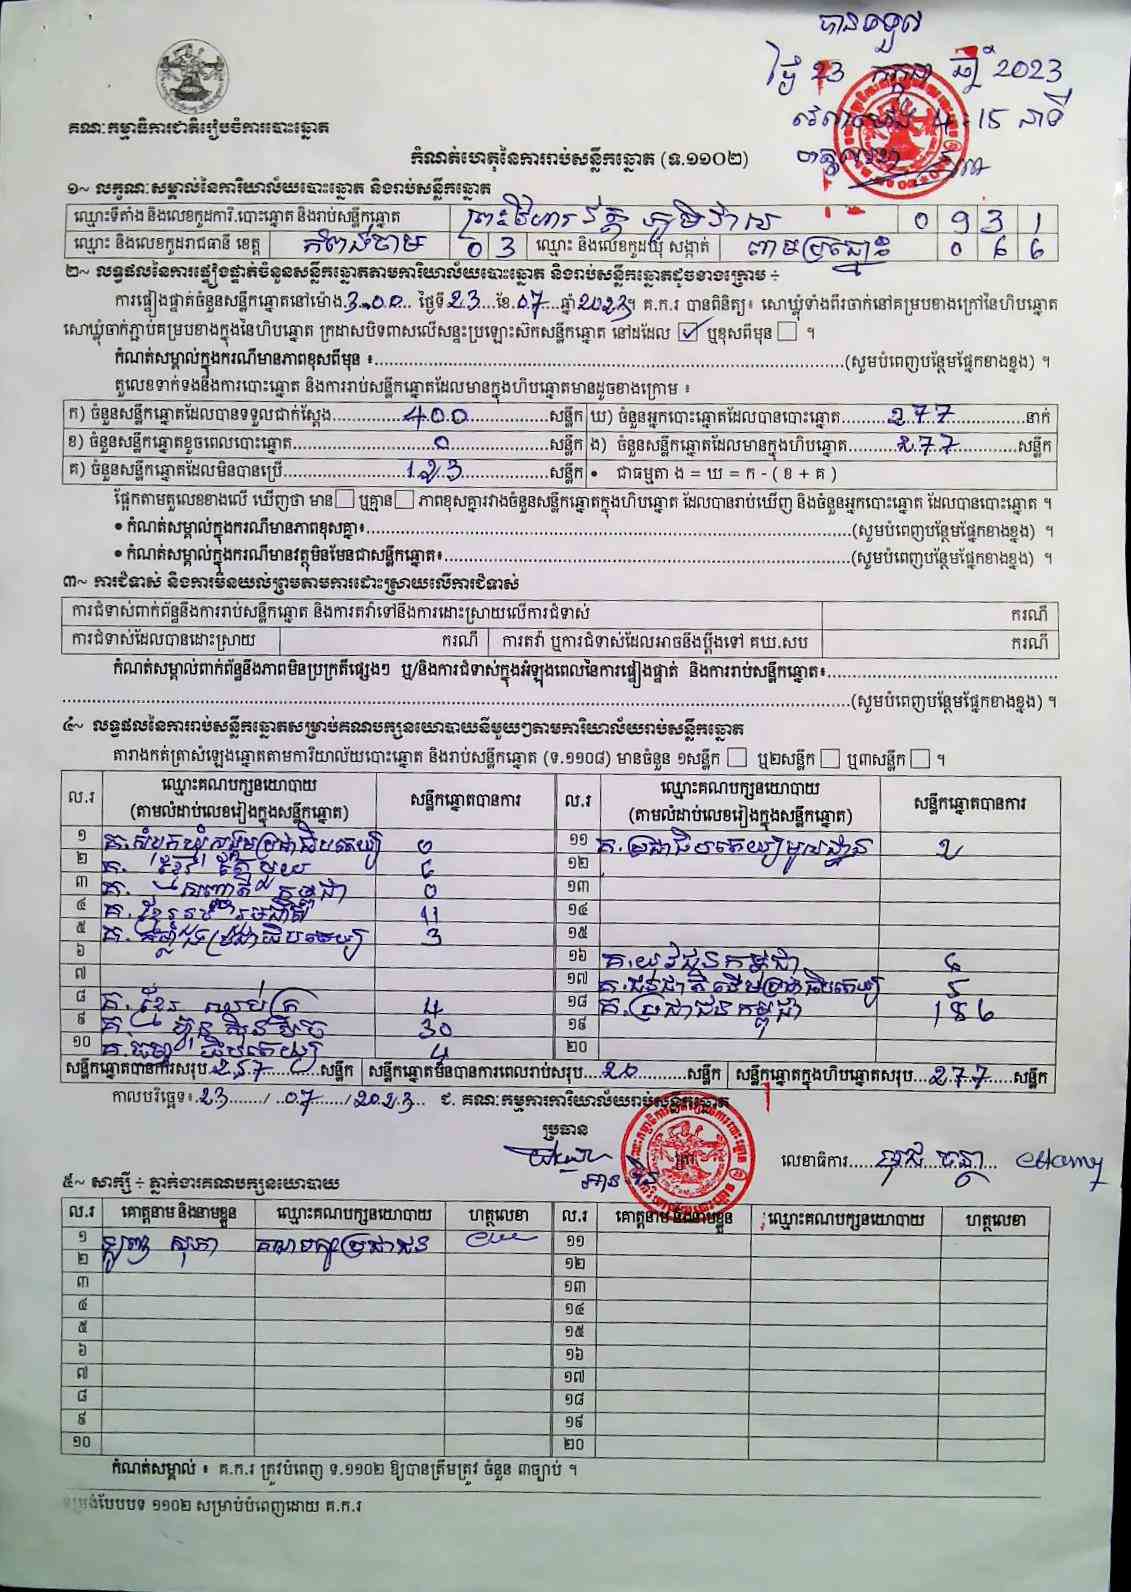 បានទទួល
ថ្ងៃ 23 កក្កដា ឆ្នាំ 2023
វេលាម៉ោង 4:15 នាទី
ហត្ថលេខា
គណៈកម្មាធិការជាតិរៀបចំការបោះឆ្នោត
កំណត់ហេតុនៃការរាប់សន្លឹកឆ្នោត (ទ.១១០២)
១~ លក្ខណៈសម្គាល់នៃការិយាល័យបោះឆ្នោត និងរាប់សន្លឹកឆ្នោត
ឈ្មោះទីតាំង និងលេខកូដការិ.បោះឆ្នោត និងរាប់សន្លឹកឆ្នោត ព្រះវិហារ វត្ត ភូមិវាល 0 9 3 1
ឈ្មោះ និងលេខកូដរាជធានី ខេត្ត កំពង់ចាម 0 3 ឈ្មោះ និងលេខកូដឃុំ សង្កាត់ ពាមប្រធ្នោះ 0 6 6
២~ លទ្ធផលនៃការផ្ទៀងផ្ទាត់ចំនួនសន្លឹកឆ្នោតតាមការិយាល័យបោះឆ្នោត និងរាប់សន្លឹកឆ្នោតដូចខាងក្រោម ÷
ការផ្ទៀងផ្ទាត់ចំនួនសន្លឹកឆ្នោតនៅម៉ោង.3.00... ថ្ងៃទី.23...ខែ.07...ឆ្នាំ2023។ គ.ក.រ បានពិនិត្យ៖ សោឃ្លុំទាំងពីរចាក់នៅគម្របខាងក្រៅនៃហិបឆ្នោត
សោឃ្លុំចាក់ភ្ជាប់គម្របខាងក្នុងនៃហិបឆ្នោត ក្រដាសបិទពាសលើសន្ទះប្រឡោះស៊កសន្លឹកឆ្នោត នៅដដែល ☑ ឬខុសពីមុន ☐ ។
កំណត់សម្គាល់ក្នុងករណីមានភាពខុសពីមុន ៖..........(សូមបំពេញបន្ថែមផ្នែកខាងខ្នង) ។
តួលេខទាក់ទងនឹងការបោះឆ្នោត និងការរាប់សន្លឹកឆ្នោតដែលមានក្នុងហិបឆ្នោតមានដូចខាងក្រោម ៖
ក) ចំនួនសន្លឹកឆ្នោតដែលបានទទួលជាក់ស្តែង..........400..........សន្លឹក ឃ) ចំនួនអ្នកបោះឆ្នោតដែលបានបោះឆ្នោត..........277..........នាក់
ខ) ចំនួនសន្លឹកឆ្នោតខូចពេលបោះឆ្នោត..........0..........សន្លឹក ង) ចំនួនសន្លឹកឆ្នោតដែលមានក្នុងហិបឆ្នោត..........277..........សន្លឹក
គ) ចំនួនសន្លឹកឆ្នោតដែលមិនបានប្រើ..........123..........សន្លឹក • ជាធម្មតា ង = ឃ = ក - ( ខ + គ )
ផ្អែកតាមតួលេខខាងលើ ឃើញថា មាន☐ ឬគ្មាន☐ ភាពខុសគ្នារវាងចំនួនសន្លឹកឆ្នោតក្នុងហិបឆ្នោត ដែលបានរាប់ឃើញ និងចំនួនអ្នកបោះឆ្នោត ដែលបានបោះឆ្នោត ។
• កំណត់សម្គាល់ក្នុងករណីមានភាពខុសគ្នា៖..........(សូមបំពេញបន្ថែមផ្នែកខាងខ្នង) ។
• កំណត់សម្គាល់ក្នុងករណីមានវត្ថុមិនមែនជាសន្លឹកឆ្នោត៖..........(សូមបំពេញបន្ថែមផ្នែកខាងខ្នង) ។
៣~ ការជំទាស់ និងការមិនយល់ព្រមតាមការដោះស្រាយលើការជំទាស់
ការជំទាស់ពាក់ព័ន្ធនឹងការរាប់សន្លឹកឆ្នោត និងការតវ៉ាទៅនឹងការដោះស្រាយលើការជំទាស់ ករណី
ការជំទាស់ដែលបានដោះស្រាយ ករណី ការតវ៉ា ឬការជំទាស់ដែលអាចនឹងប្តឹងទៅ គឃ.សប ករណី
កំណត់សម្គាល់ពាក់ព័ន្ធនឹងភាពមិនប្រក្រតីផ្សេងៗ ឬ/និងការជំទាស់ក្នុងអំឡុងពេលនៃការផ្ទៀងផ្ទាត់ និងការរាប់សន្លឹកឆ្នោត៖..........
..........(សូមបំពេញបន្ថែមផ្នែកខាងខ្នង) ។
៤~ លទ្ធផលនៃការរាប់សន្លឹកឆ្នោតសម្រាប់គណបក្សនយោបាយនីមួយៗតាមការិយាល័យរាប់សន្លឹកឆ្នោត
តារាងកត់ត្រាសំឡេងឆ្នោតតាមការិយាល័យបោះឆ្នោត និងរាប់សន្លឹកឆ្នោត (ទ.១១០៨) មានចំនួន ១សន្លឹក ☐ ឬ២សន្លឹក ☐ ឬ៣សន្លឹក ☐ ។
ល.រ ឈ្មោះគណបក្សនយោបាយ (តាមលំដាប់លេខរៀងក្នុងសន្លឹកឆ្នោត) សន្លឹកឆ្នោតបានការ ល.រ ឈ្មោះគណបក្សនយោបាយ (តាមលំដាប់លេខរៀងក្នុងសន្លឹកឆ្នោត) សន្លឹកឆ្នោតបានការ
១ គ.សំបុកឃ្មុំសង្គមប្រជាធិបតេយ្យ 0 ១១ គ.ប្រជាធិបតេយ្យមូលដ្ឋាន 2
២ គ. ខ្មែរ តែមួយ 6 ១២
៣ គ. សញ្ជាតិ កម្ពុជា 0 ១៣
៤ គ. ខ្មែររួបរួមជាតិ 11 ១៤
៥ គ. កម្លាំងប្រជាធិបតេយ្យ 3 ១៥
៦ ១៦ គ.យុវជនកម្ពុជា 6
៧ ១៧ គ.ជនជាតិដើមប្រជាធិបតេយ្យ 5
៨ គ. ខ្មែរ ឈប់ក្រ 4 ១៨ គ.ប្រជាជនកម្ពុជា 186
៩ គ. ហ៊្វុនស៊ិនប៉ិច 30 ១៩
១០ គ.ធម្មាធិបតេយ្យ 4 ២០
សន្លឹកឆ្នោតបានការសរុប.257..........សន្លឹក សន្លឹកឆ្នោតមិនបានការពេលរាប់សរុប....20..........សន្លឹក សន្លឹកឆ្នោតក្នុងហិបឆ្នោតសរុប...277.....សន្លឹក
កាលបរិច្ឆេទ៖.23....../..07....../2023... ជ. គណៈកម្មការការិយាល័យរាប់សន្លឹកឆ្នោត
ប្រធាន
លេខាធិការ..........
៥~ សាក្សី ÷ ភ្នាក់ងារគណបក្សនយោបាយ
ល.រ គោត្តនាម និងនាមខ្លួន ឈ្មោះគណបក្សនយោបាយ ហត្ថលេខា ល.រ គោត្តនាម និងនាមខ្លួន ឈ្មោះគណបក្សនយោបាយ ហត្ថលេខា
១ សុភា គណបក្សប្រជាជន ១១
២ ១២
៣ ១៣
៤ ១៤
៥ ១៥
៦ ១៦
៧ ១៧
៨ ១៨
៩ ១៩
១០ ២០
កំណត់សម្គាល់ ៖ គ.ក.រ ត្រូវបំពេញ ទ.១១០២ ឱ្យបានត្រឹមត្រូវ ចំនួន ៣ច្បាប់ ។
ទម្រង់បែបបទ ១១០២ សម្រាប់បំពេញដោយ គ.ក.រ